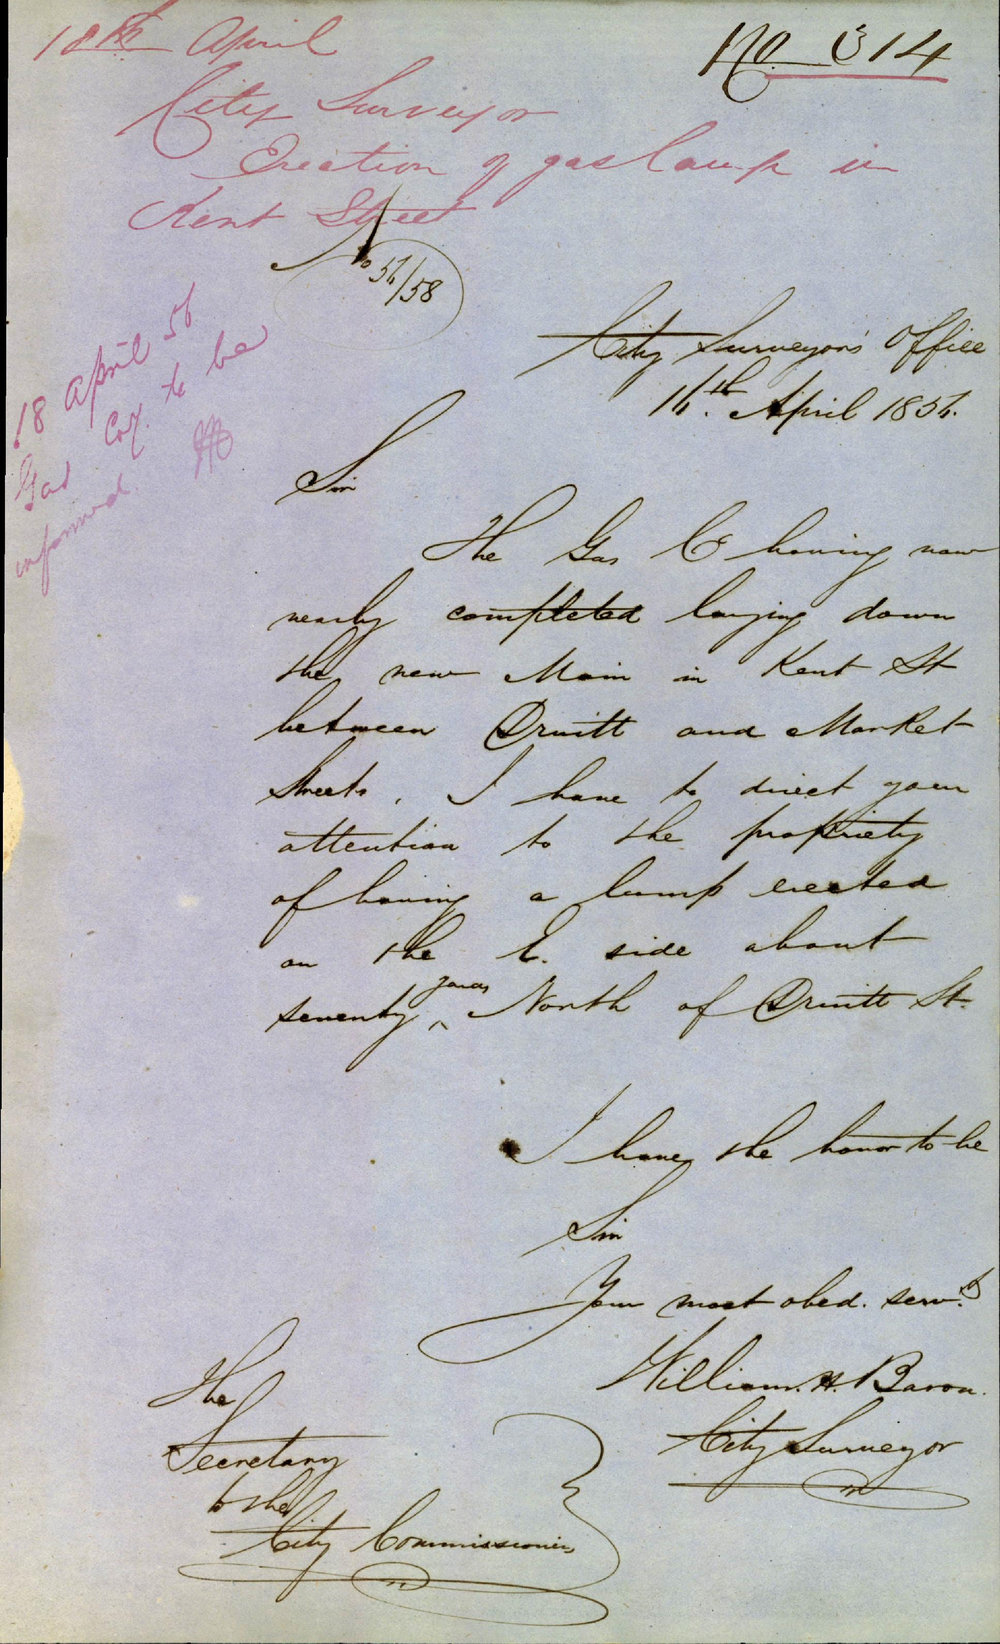 18th April
No 314
City Surveyor
Erection of gas lamp in
Kent Street
No 56/58
18 April 56
Gas Coy. to be
informed.
City Surveyor's Office
16.th April 1856.
Sir
The Gas Co having now
nearly completed laying down
the new Main in Kent St
between Druitt and Market
Streets, I have to direct your
attention to the propriety
of having a lamp erected
on the E. side about
seventy yards North of Druitt St.
I have the honor to be
Sir
Your most obed. servt.
William. H. Baron.
City Surveyor
The
Secretary
to the
City Commissioners